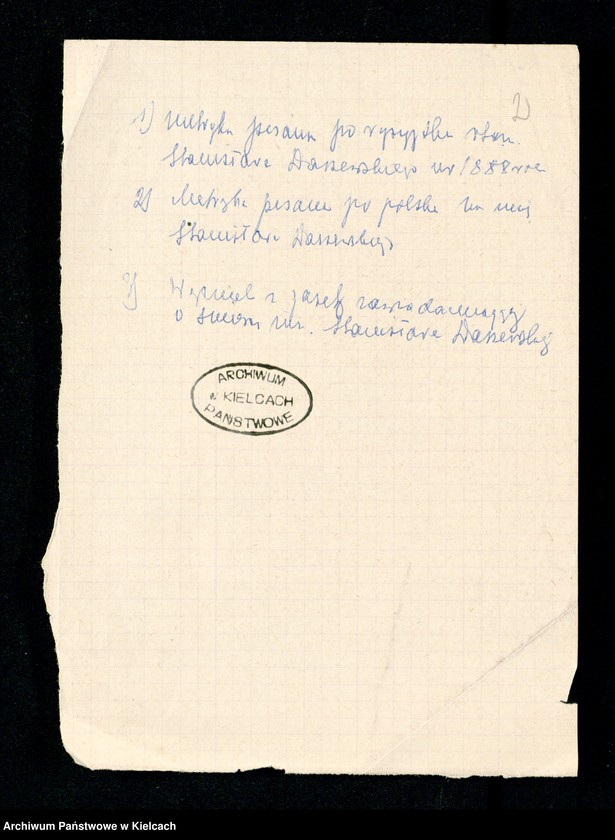 2)
1) Metryka pisana po rosyjsku
Stanisława Daszewskiego ur 1888 roc
2) Metryka pisana po polsku
Stanisława Daszewskiego
3) Wycinek z zawiadamiający
o śmierci Stanisława Daszewskiego
ARCHIWUM
w KIELCACH
PAŃSTWOWE
Archiwum Państwowe w Kielcach